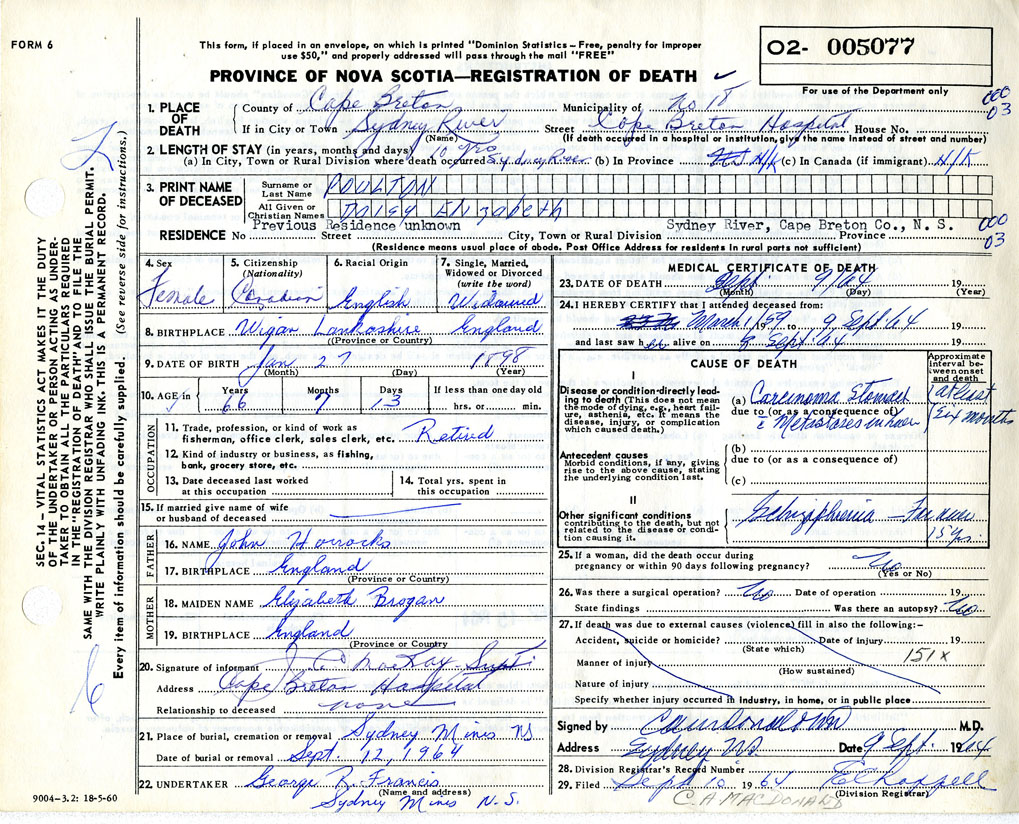 FORM 6
This form, if placed in an envelope, on which is printed "Dominion Statistics – Free, penalty for improper
use $50," and properly addressed will pass through the mail "FREE"
O2- 005077
For use of the Department only
PROVINCE OF NOVA SCOTIA—REGISTRATION OF DEATH ✓
000
03
1. PLACE OF DEATH
County of Cape Breton Municipality of No 18
If in City or Town Sydney River Street Cape Breton Hospital House No.
(Name) (If death occurred in a hospital or institution, give the name instead of street and number)
2. LENGTH OF STAY (in years, months and days) 10 yrs
(a) In City, Town or Rural Division where death occurred Sydney River (b) In Province N/K (c) In Canada (if immigrant) N/K
3. PRINT NAME OF DECEASED
Surname or Last Name POULTON
All Given or Christian Names
Previous Residence unknown Sydney River, Cape Breton Co., N. S.
000
03
RESIDENCE No Street City, Town or Rural Division Province
(Residence means usual place of abode. Post Office Address for residents in rural parts not sufficient)
SEC. 14 – VITAL STATISTICS ACT MAKES IT THE DUTY
OF THE UNDERTAKER OR PERSON ACTING AS UNDER-
TAKER TO OBTAIN ALL THE PARTICULARS REQUIRED
IN THE "REGISTRATION OF DEATH" AND TO FILE THE
SAME WITH THE DIVISION REGISTRAR WHO SHALL ISSUE THE BURIAL PERMIT.
WRITE PLAINLY WITH UNFADING INK. THIS IS A PERMANENT RECORD.
Every item of information should be carefully supplied. (See reverse side for instructions.)
4. Sex Female
5. Citizenship (Nationality) Canadian
6. Racial Origin English
7. Single, Married, Widowed or Divorced (write the word) Widowed
8. BIRTHPLACE Wigan Lankashire England
(Province or Country)
9. DATE OF BIRTH Jan 27 1898
(Month) (Day) (Year)
10. AGE in Years 66 Months 7 Days 13 If less than one day old
hrs. or min.
OCCUPATION
11. Trade, profession, or kind of work as
fisherman, office clerk, sales clerk, etc. Retired
12. Kind of industry or business, as fishing,
bank, grocery store, etc.
13. Date deceased last worked
at this occupation
14. Total yrs. spent in
this occupation
15. If married give name of wife
or husband of deceased
FATHER
16. NAME John Horrocks
17. BIRTHPLACE England
(Province or Country)
MOTHER
18. MAIDEN NAME Elizabeth Brogan
19. BIRTHPLACE England
(Province or Country)
20. Signature of informant J. C. MacKay Supt.
Address Cape Breton Hospital
Relationship to deceased none
21. Place of burial, cremation or removal Sydney Mines NS
Date of burial or removal Sept. 12, 1964
22. UNDERTAKER George R. Francis
(Name and address)
Sydney Mines N.S.
9004-3.2: 18-5-60
MEDICAL CERTIFICATE OF DEATH
23. DATE OF DEATH Sept 9/64 19
(Month) (Day) (Year)
24. I HEREBY CERTIFY that I attended deceased from:
March 1/59 19 to 9, Sept 64 19
and last saw her alive on 9 Sept. 64 19
CAUSE OF DEATH
Approximate
interval be-
tween onset
and death
I
Disease or condition directly lead-
ing to death (This does not mean
the mode of dying, e.g., heart fail-
ure, asthenia, etc. It means the
disease, injury, or complication
which caused death.)
(a) Carcinoma Stomach at least
due to (or as a consequence of)
Metastases in liver six months
Antecedent causes
Morbid conditions, if any, giving
rise to the above cause, stating
the underlying condition last.
(b)
due to (or as a consequence of)
(c)
II
Other significant conditions
contributing to the death, but not
related to the disease or condi-
tion causing it.
Schizophrenia – For over
15 yrs.
25. If a woman, did the death occur during
pregnancy or within 90 days following pregnancy? No
(Yes or No)
26. Was there a surgical operation? No Date of operation 19
State findings Was there an autopsy? No
27. If death was due to external causes (violence) fill in also the following:—
Accident, suicide or homicide? Date of injury 19
(State which)
151X
Manner of injury
(How sustained)
Nature of injury
Specify whether injury occurred in industry, in home, or in public place
Signed by M.D.
Address Sydney NS. Date 9 Sept. 1964
28. Division Registrar's Record Number
29. Filed Sept 10 1964 E Chappell
(Division Registrar)
C.A. MACDONALD